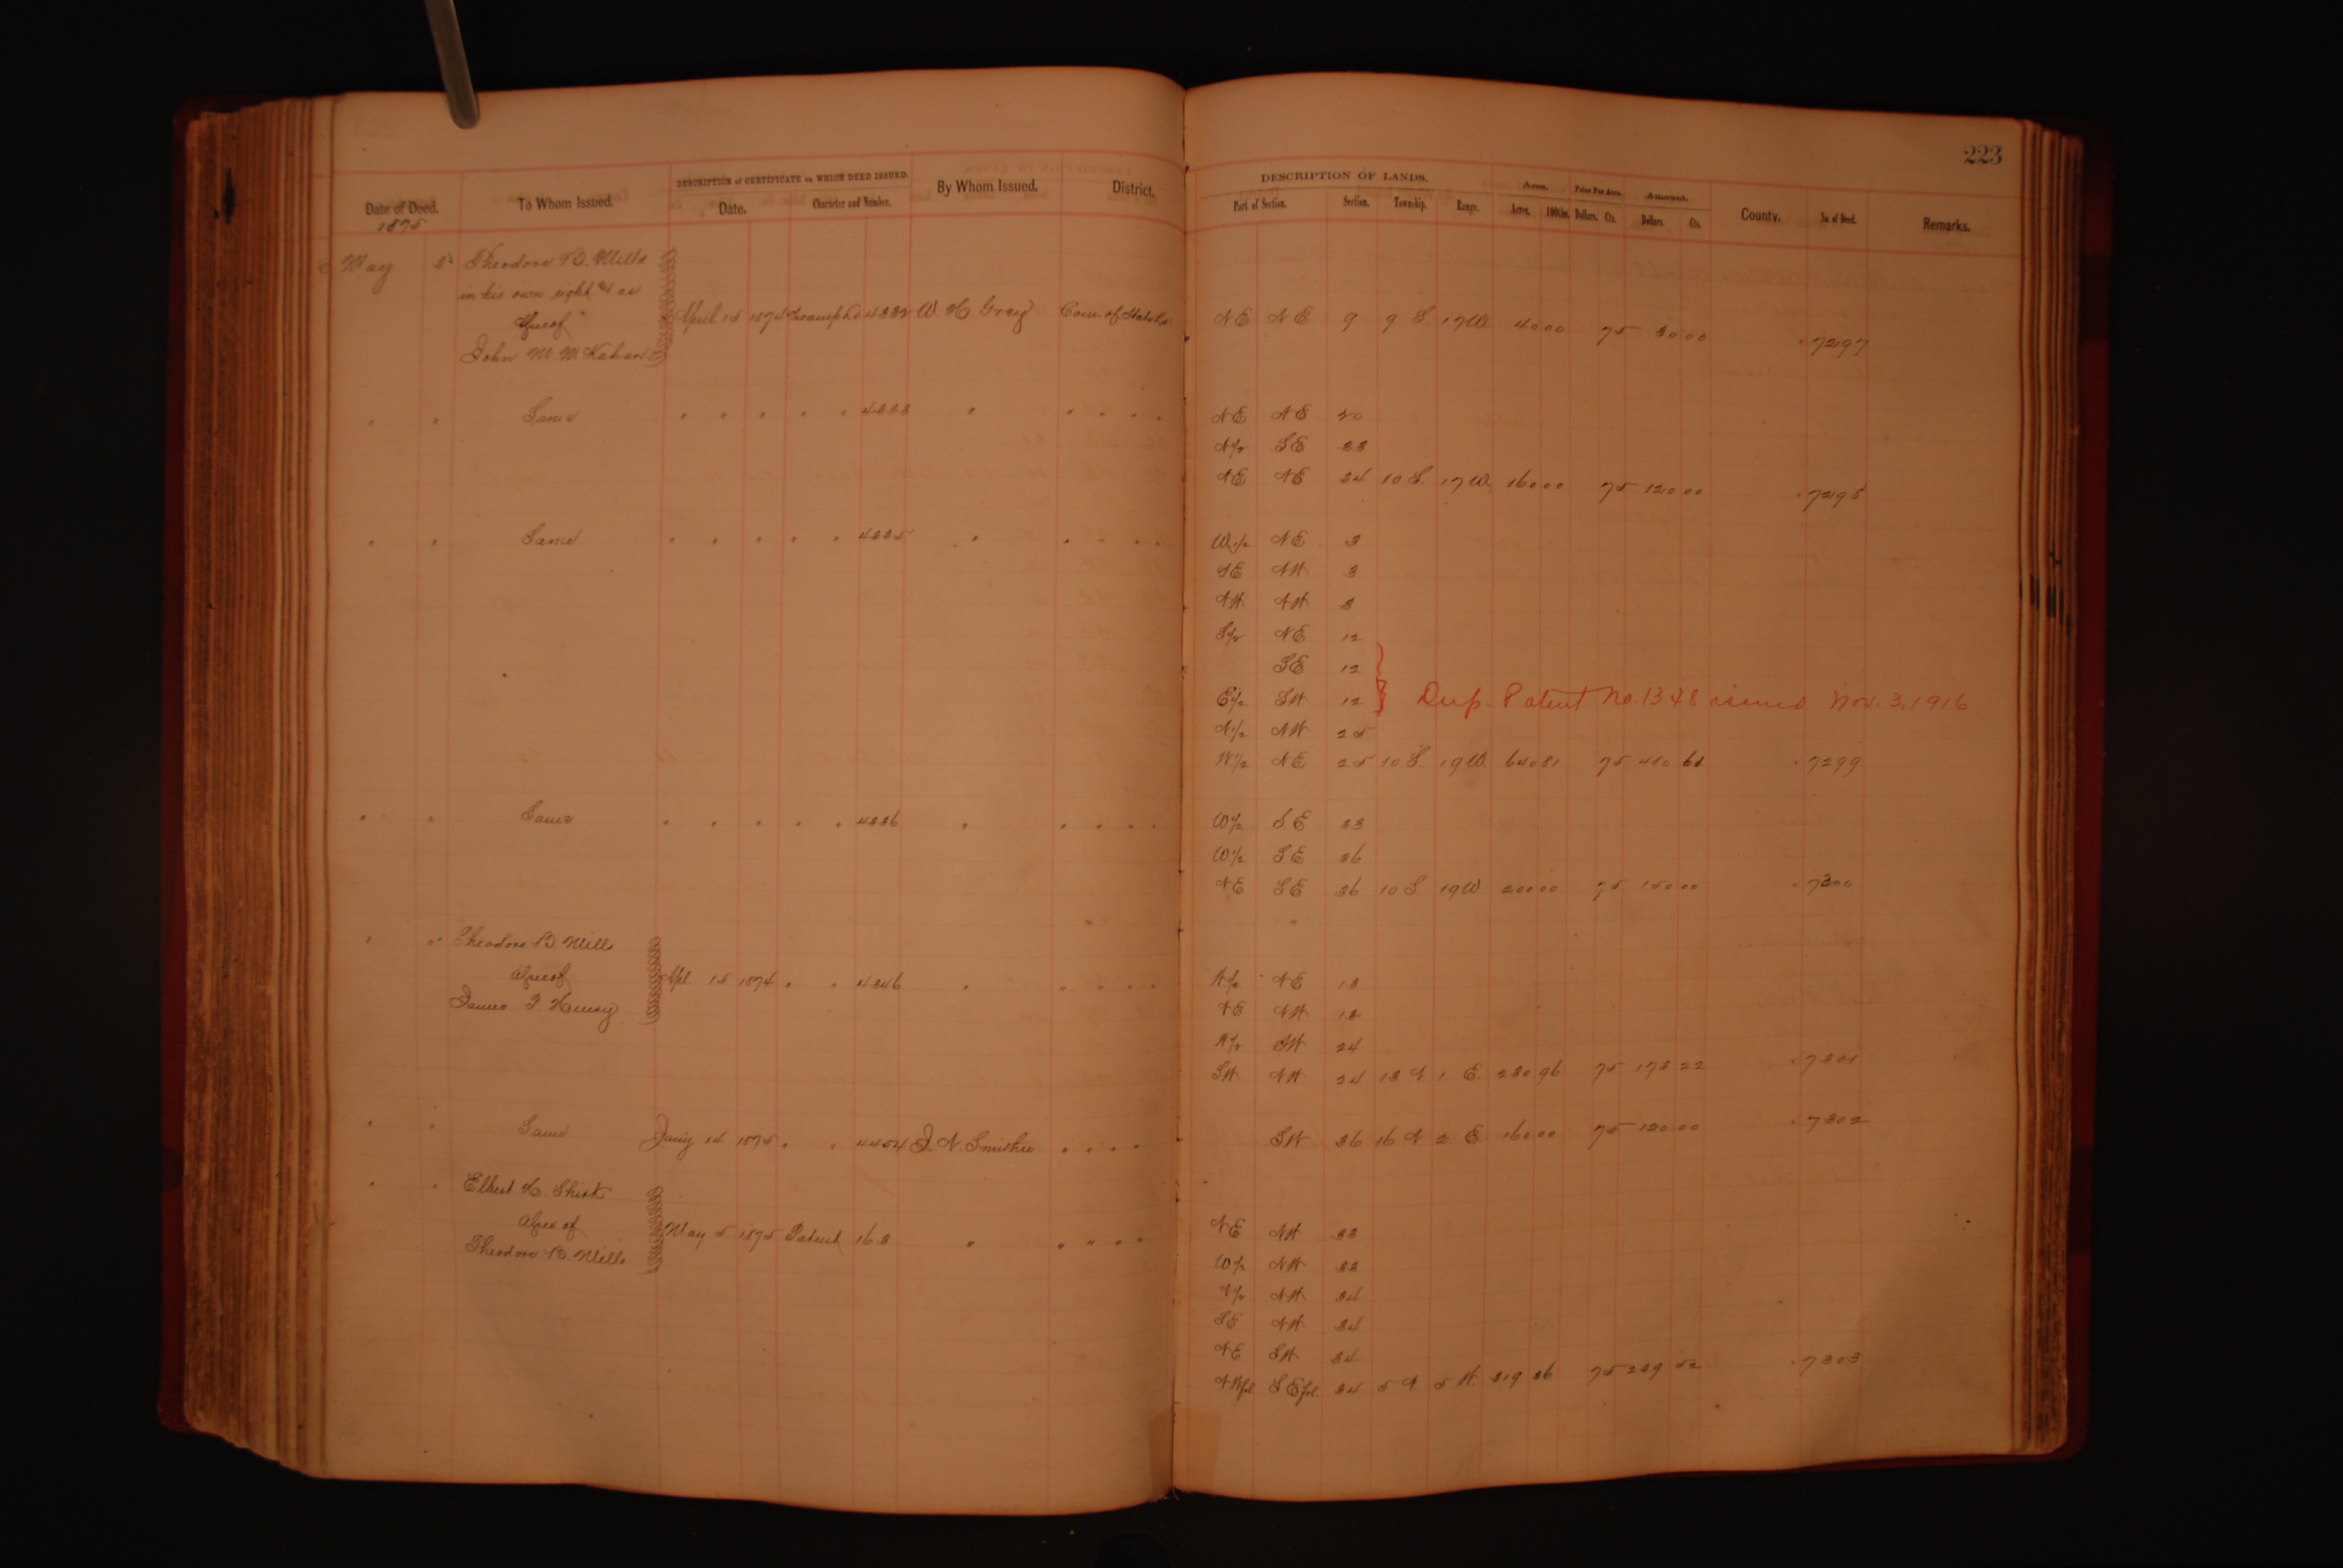 223
DESCRIPTION of CERTIFICATE on WHICH DEED ISSUED.
DESCRIPTION OF LANDS.
Date of Deed. To Whom Issued. Date. Character and Number. By Whom Issued. District. Part of Section. Section. Township. Range. Area. Acres. 100ths. Price Per Acre. Dollars. Cts. Amount. Dollars. Cts. County. No. of Deed. Remarks.
1875
May 5 Theodore B. Mills
in his own right & as
Assee of
John M. McKahan
April 15 1874 Swamp Ld 4332 W. H. Grey Com. of State Lds NE NE 9 9 S. 17 W. 40 00 75 30 00 7297
" " Same " " " " " 4333 " " " " " NE NE 20
N/2 SE 33
NE NE 34 10 S. 17 W. 160 00 75 120 00 7298
" " Same " " " " " 4335 " " " " " W 1/2 NE 3
SE NW 3
NW NW 3
S/2 NE 12
SE 12
E 1/2 SW 12 } Dup. Patent No. 1348 issued Nov. 3, 1916
N 1/2 NW 25
W 1/2 NE 25 10 S. 19 W. 640 81 75 480 61 7299
" " Same " " " " " 4336 " " " " " W 1/2 SE 33
W 1/2 SE 36
NE SE 36 10 S. 19 W 200 00 75 150 00 7300
" " Theodore B Mills
Assee of
James F Henry
Apl 15 1874 " " 4346 " " " " " W/2 NE 13
NE NW 13
W/2 SW 24
SW NW 24 13 N 1 E. 230 96 75 173 22 7301
" " Same Jan'y 14 1875 " " 4454 J. N. Smithee " " " " SW 36 16 N 2 E 160 00 75 120 00 7302
" " Elbert H. Shirk
Assee of
Theodore B. Mills
May 5 1875 Patent 163 " " " " " NE NW 33
W/2 NW 33
N/2 NW 34
SE NW 34
NE SW 34
NW frl SE frl. 34 5 N. 5 W. 319 36 75 239 52 7303